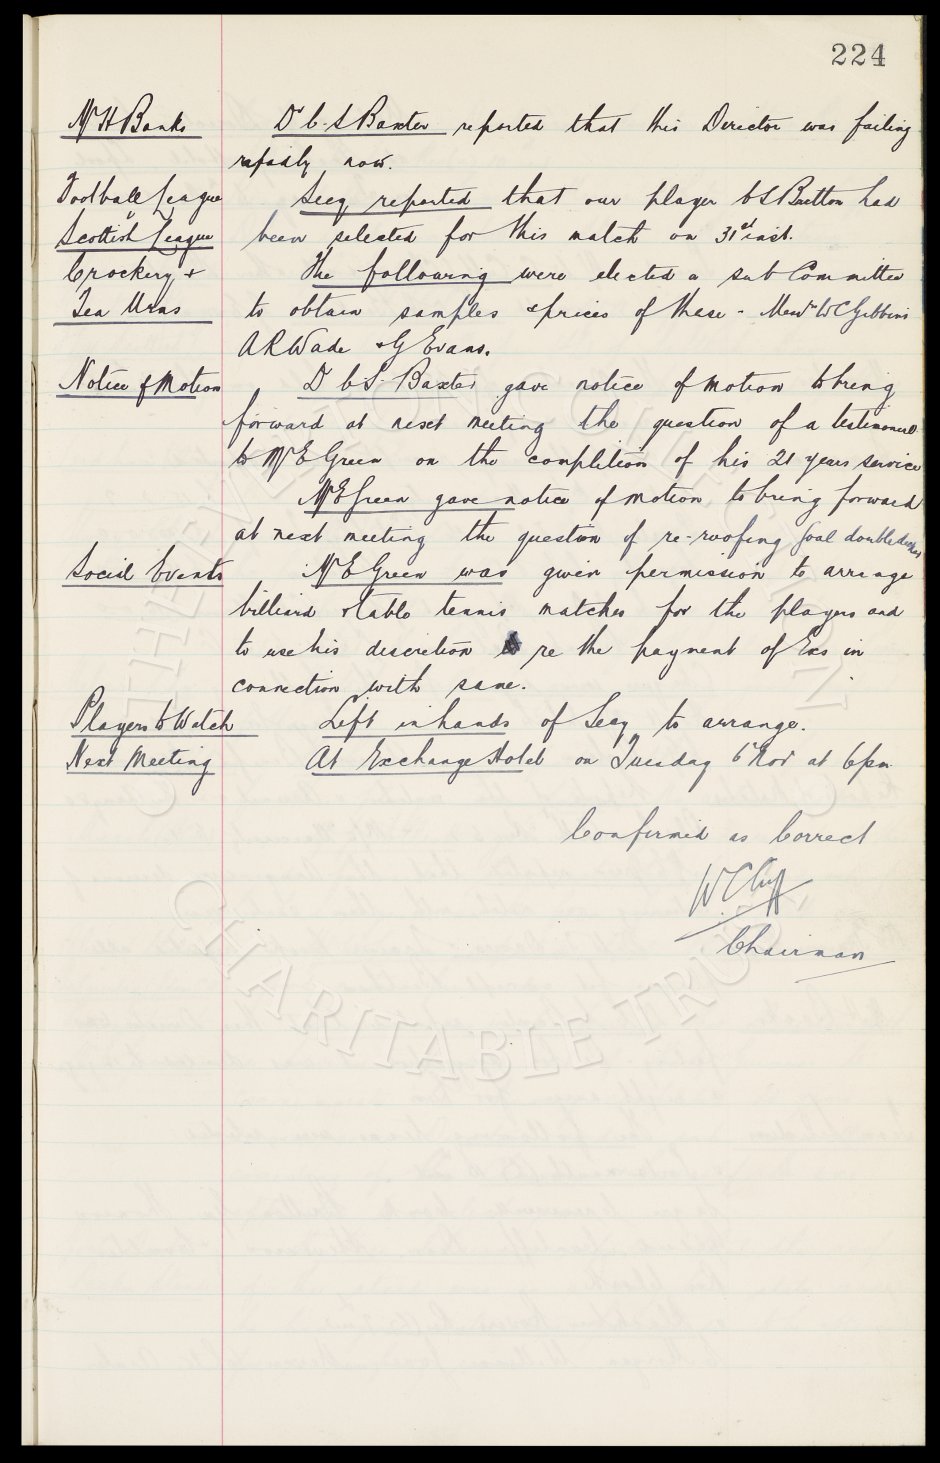 224
Mr H Banks Dr C.S Baxter reported that this Director was failing
rapidly now.
Football League Secy reported that our player C S Britton had
Scottish League been selected for this match on 31st inst.
Crockery & The following were elected a sub Committee
Tea Urns to obtain samples & prices of these - Messrs W C Gibbins
A R Wade & G Evans.
Notice of Motion Dr C.S. Baxter gave notice of motion to bring
forward at next meeting the question of a testimonial
to Mr E Green on the completion of his 21 years service
Mr E Green gave notice of motion to bring forward
at next meeting the question of re-roofing Goal double decker
Social Events Mr E Green was given permission to arrange
billiard & table tennis matches for the players and
to use his discretion re the payment of Exs in
connection with same.
Players to Watch Left in hands of Secy to arrange.
Next Meeting At Exchange Hotel on Tuesday 6 Nov at 6pm
Confirmed as Correct
W. C. Cuff
Chairman
THE EVERTON COLLECTION
CHARITABLE TRUST